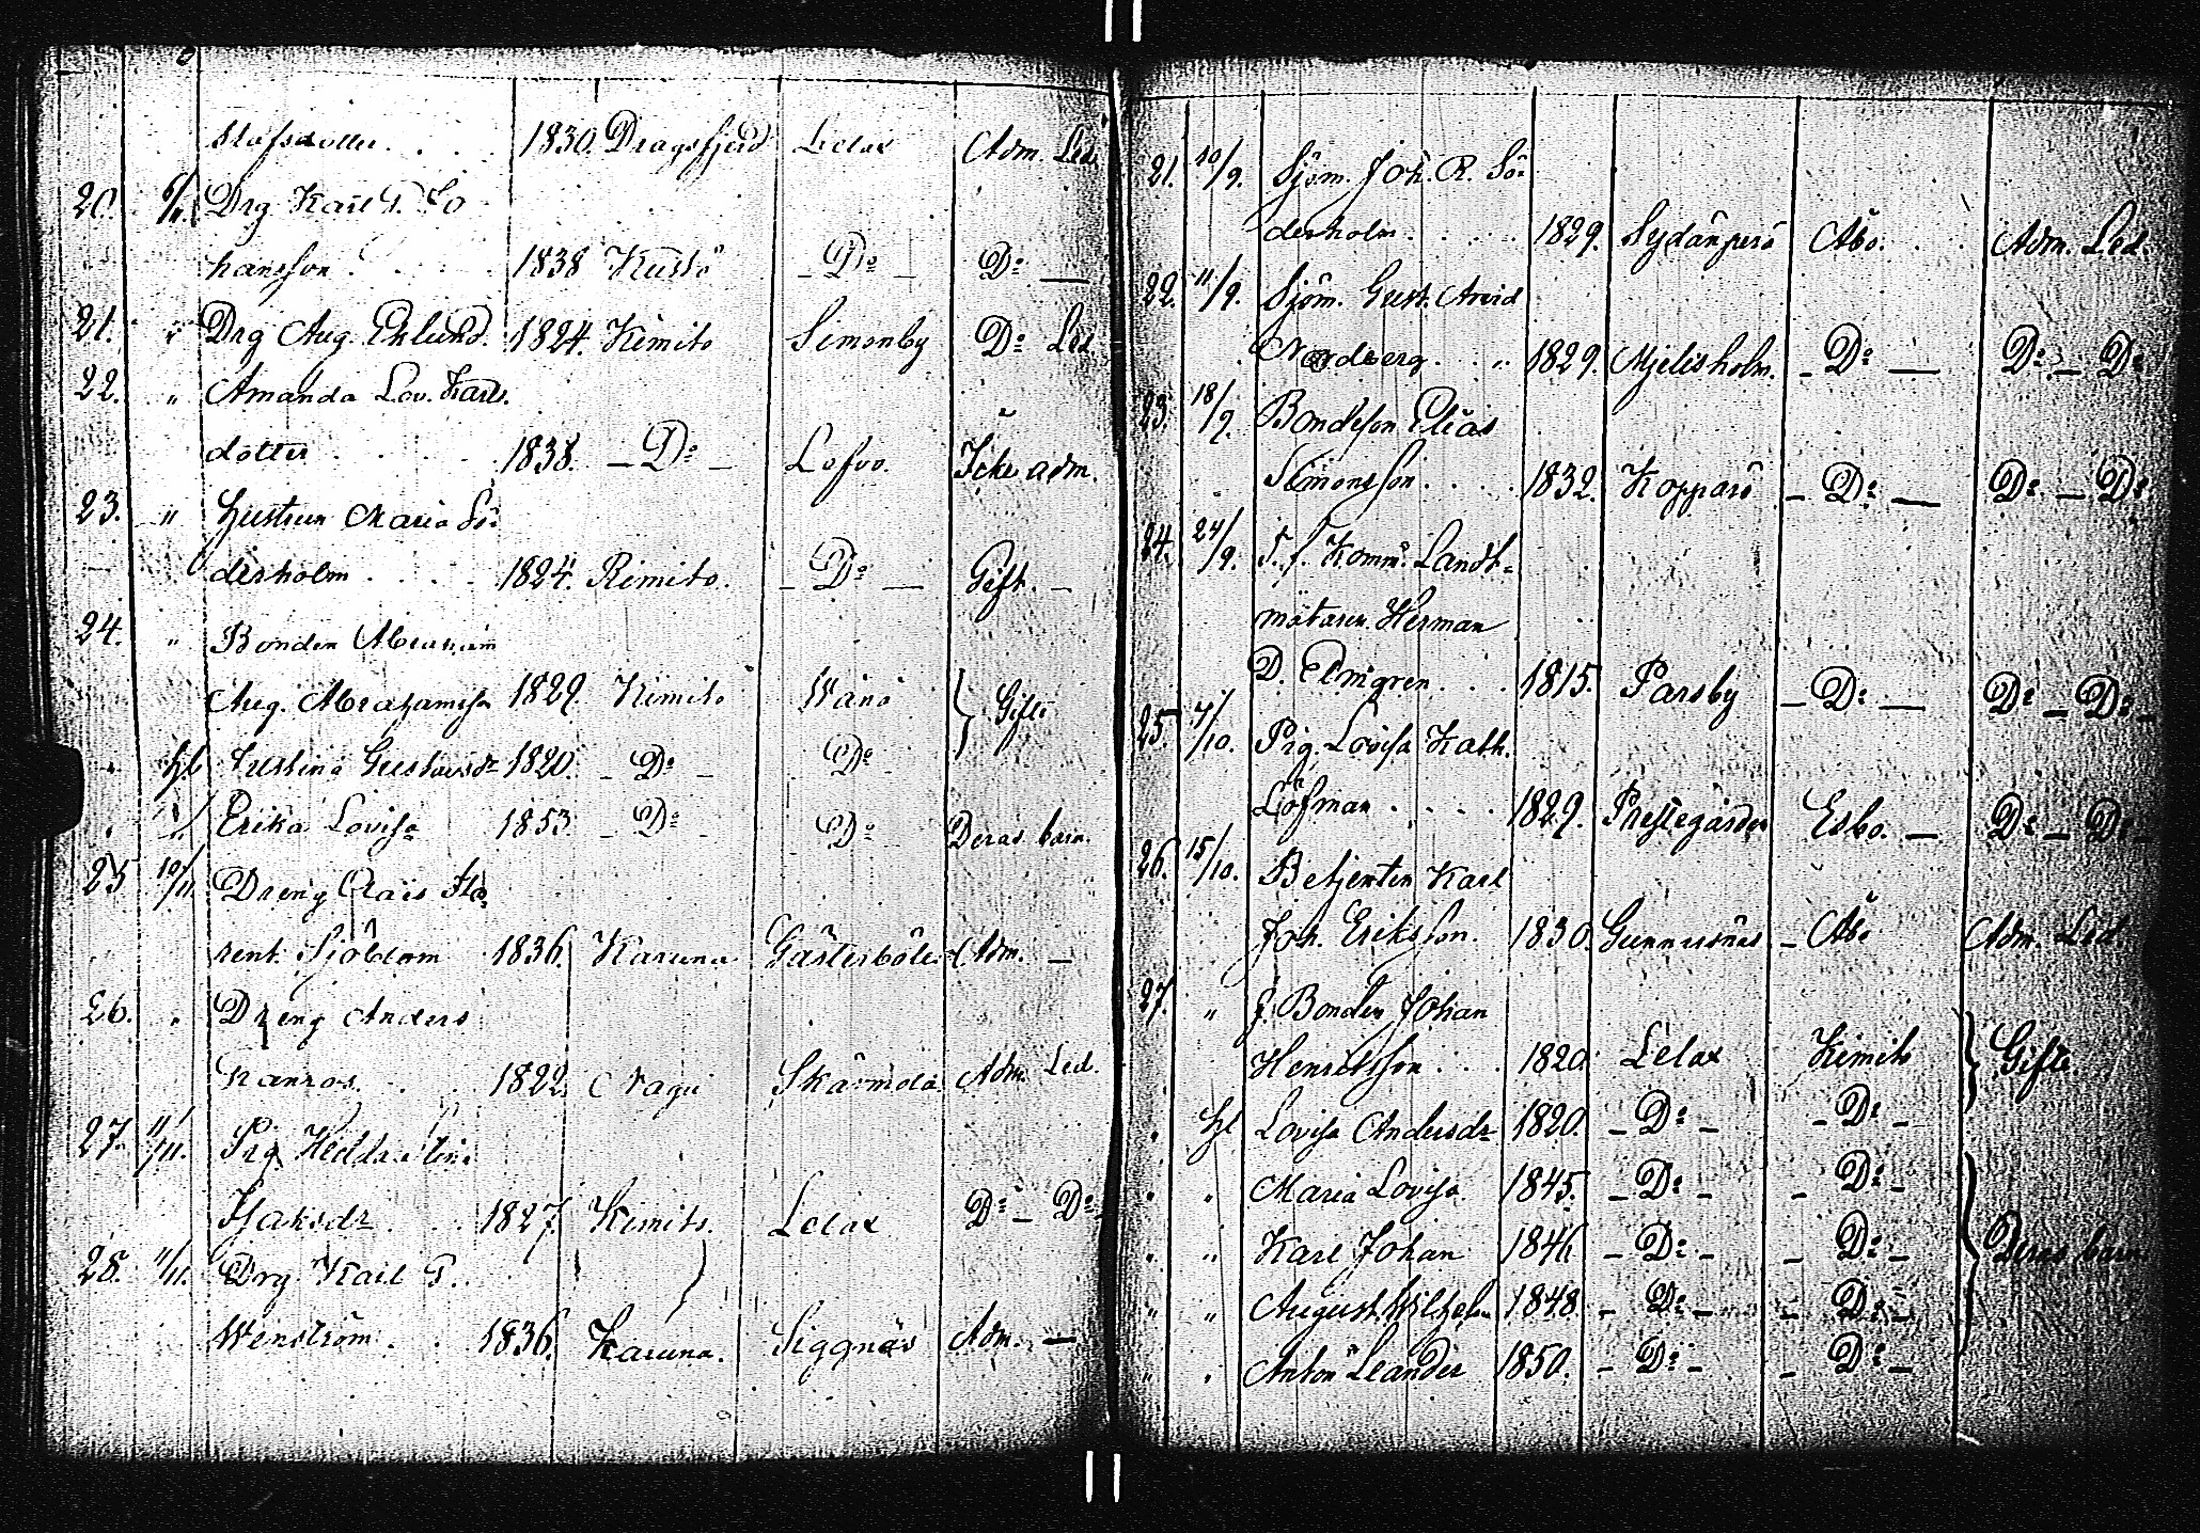 stafsdotter . . . 1830. Dragsfjerd Lelax Adm. Led.
20. 6/11. Drg Karl F. Jo
hansson . . . 1838 Kustö — Do — Do —
21. " Drg Aug. Ehlund. 1824. Kimito Simonby Do Led.
22. " Amanda Lov. Karls.
dotter . . . 1838. — Do — Lofvo. Icke adm.
23. " Hustrun Maria Sö-
derholm . . . 1824. Rimito. — Do — Gift. —
24. " Bonden Abraham
Aug. Abrahamsson 1829. Kimito Wänö } Gifte
" Hl Justina Gustavsdr 1820. — Do — Do
" " Erika Lovisa 1853 — Do — Do Deras barn.
25 10/11. Dreng Claes Flo-
rent. Sjöblom 1836. Karuna Gästerböle Adm. —
26. " Dreng Anders
1822. Nagu Skärmola Adm. Led.
27. 11/11. Pig. Hedda Stina
Isaksdr . . 1827. Kimito. Lelax Do — Do —
28. 11/11. Drg Karl F.
Wenström . . 1836. Karuna. Siggnäs Adm. —
21. 10/9. Sjöm. Joh. R. Sö-
derholm . . . . 1829. Sydänperä Åbo. Adm. Led.
22. 11/9. Sjöm. Gust. Arvid
Nordberg . . . 1829. Mjelisholm. — Do — Do — Do
23. 18/9. Bondeson Elias
Simonsson . . . . 1832. Kopparö — Do — Do — Do
24. 24/9. T. f. Komm. Landt-
mätaren Herman
D. Elmgren . . . 1815. Parsby — Do — Do — Do —
25. 4/10. Pig. Lovisa Kath.
Löfman . . . . 1829. Prestegården Esbo. — Do — Do —
26. 15/10. Betjenten Karl
Joh. Eriksson. 1830. Gunnarsnäs — Åbo Adm. Led.
27. " f. Bonden Johan
Henriksson . . . 1820. Lelax Kimito } Gifte.
" Hl Lovisa Andersdr 1820. — Do — — Do —
" " Maria Lovisa. 1845. — Do — — Do —
" " Karl Johan 1846 — Do — — Do — } Deras barn
" " August Wilhelm 1848 — Do — — Do —
" " Anton Leander 1850. — Do — — Do —